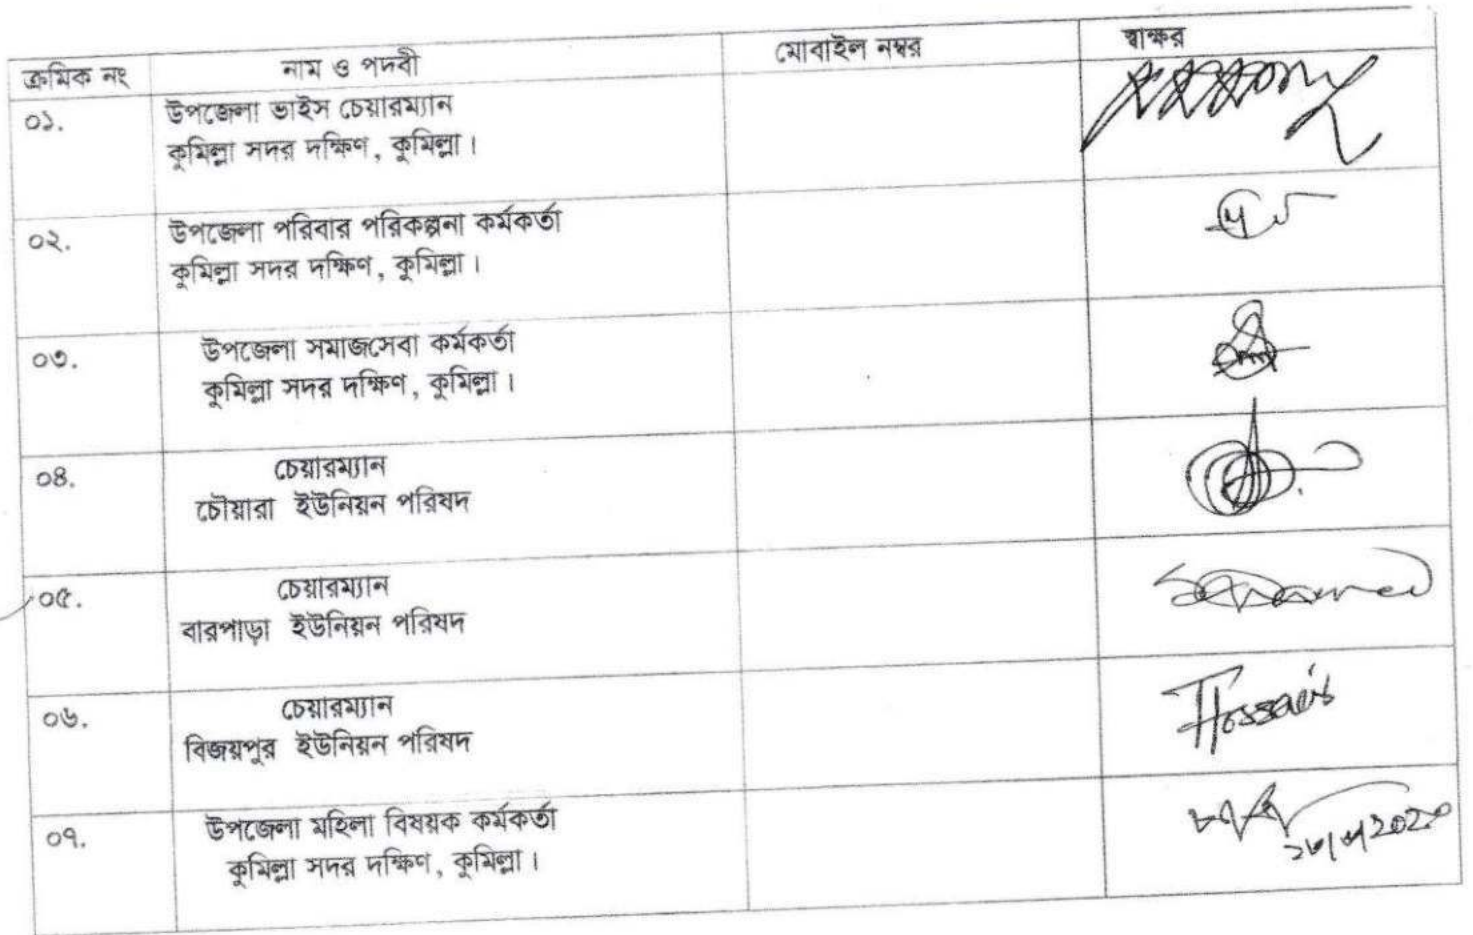 ক্রমিক নং নাম ও পদবী মোবাইল নম্বর স্বাক্ষর
০১. উপজেলা ভাইস চেয়ারম্যান
কুমিল্লা সদর দক্ষিণ, কুমিল্লা।
০২. উপজেলা পরিবার পরিকল্পনা কর্মকর্তা
কুমিল্লা সদর দক্ষিণ, কুমিল্লা।
০৩. উপজেলা সমাজসেবা কর্মকর্তা
কুমিল্লা সদর দক্ষিণ, কুমিল্লা।
০৪. চেয়ারম্যান
চৌয়ারা ইউনিয়ন পরিষদ
০৫. চেয়ারম্যান
বারপাড়া ইউনিয়ন পরিষদ
০৬. চেয়ারম্যান
বিজয়পুর ইউনিয়ন পরিষদ
Hossain
০৭. উপজেলা মহিলা বিষয়ক কর্মকর্তা
কুমিল্লা সদর দক্ষিণ, কুমিল্লা।